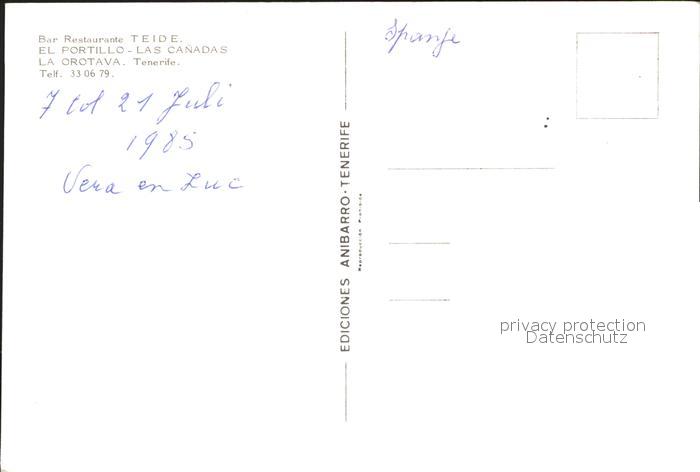 Bar Restaurante TEIDE.
EL PORTILLO - LAS CAÑADAS
LA OROTAVA. Tenerife.
Telf. 33 06 79.
7 tot 21 Juli
1985
Vera en Luc
EDICIONES ANIBARRO - TENERIFE
Reproducción Prohibida
Spanje
privacy protection
Datenschutz